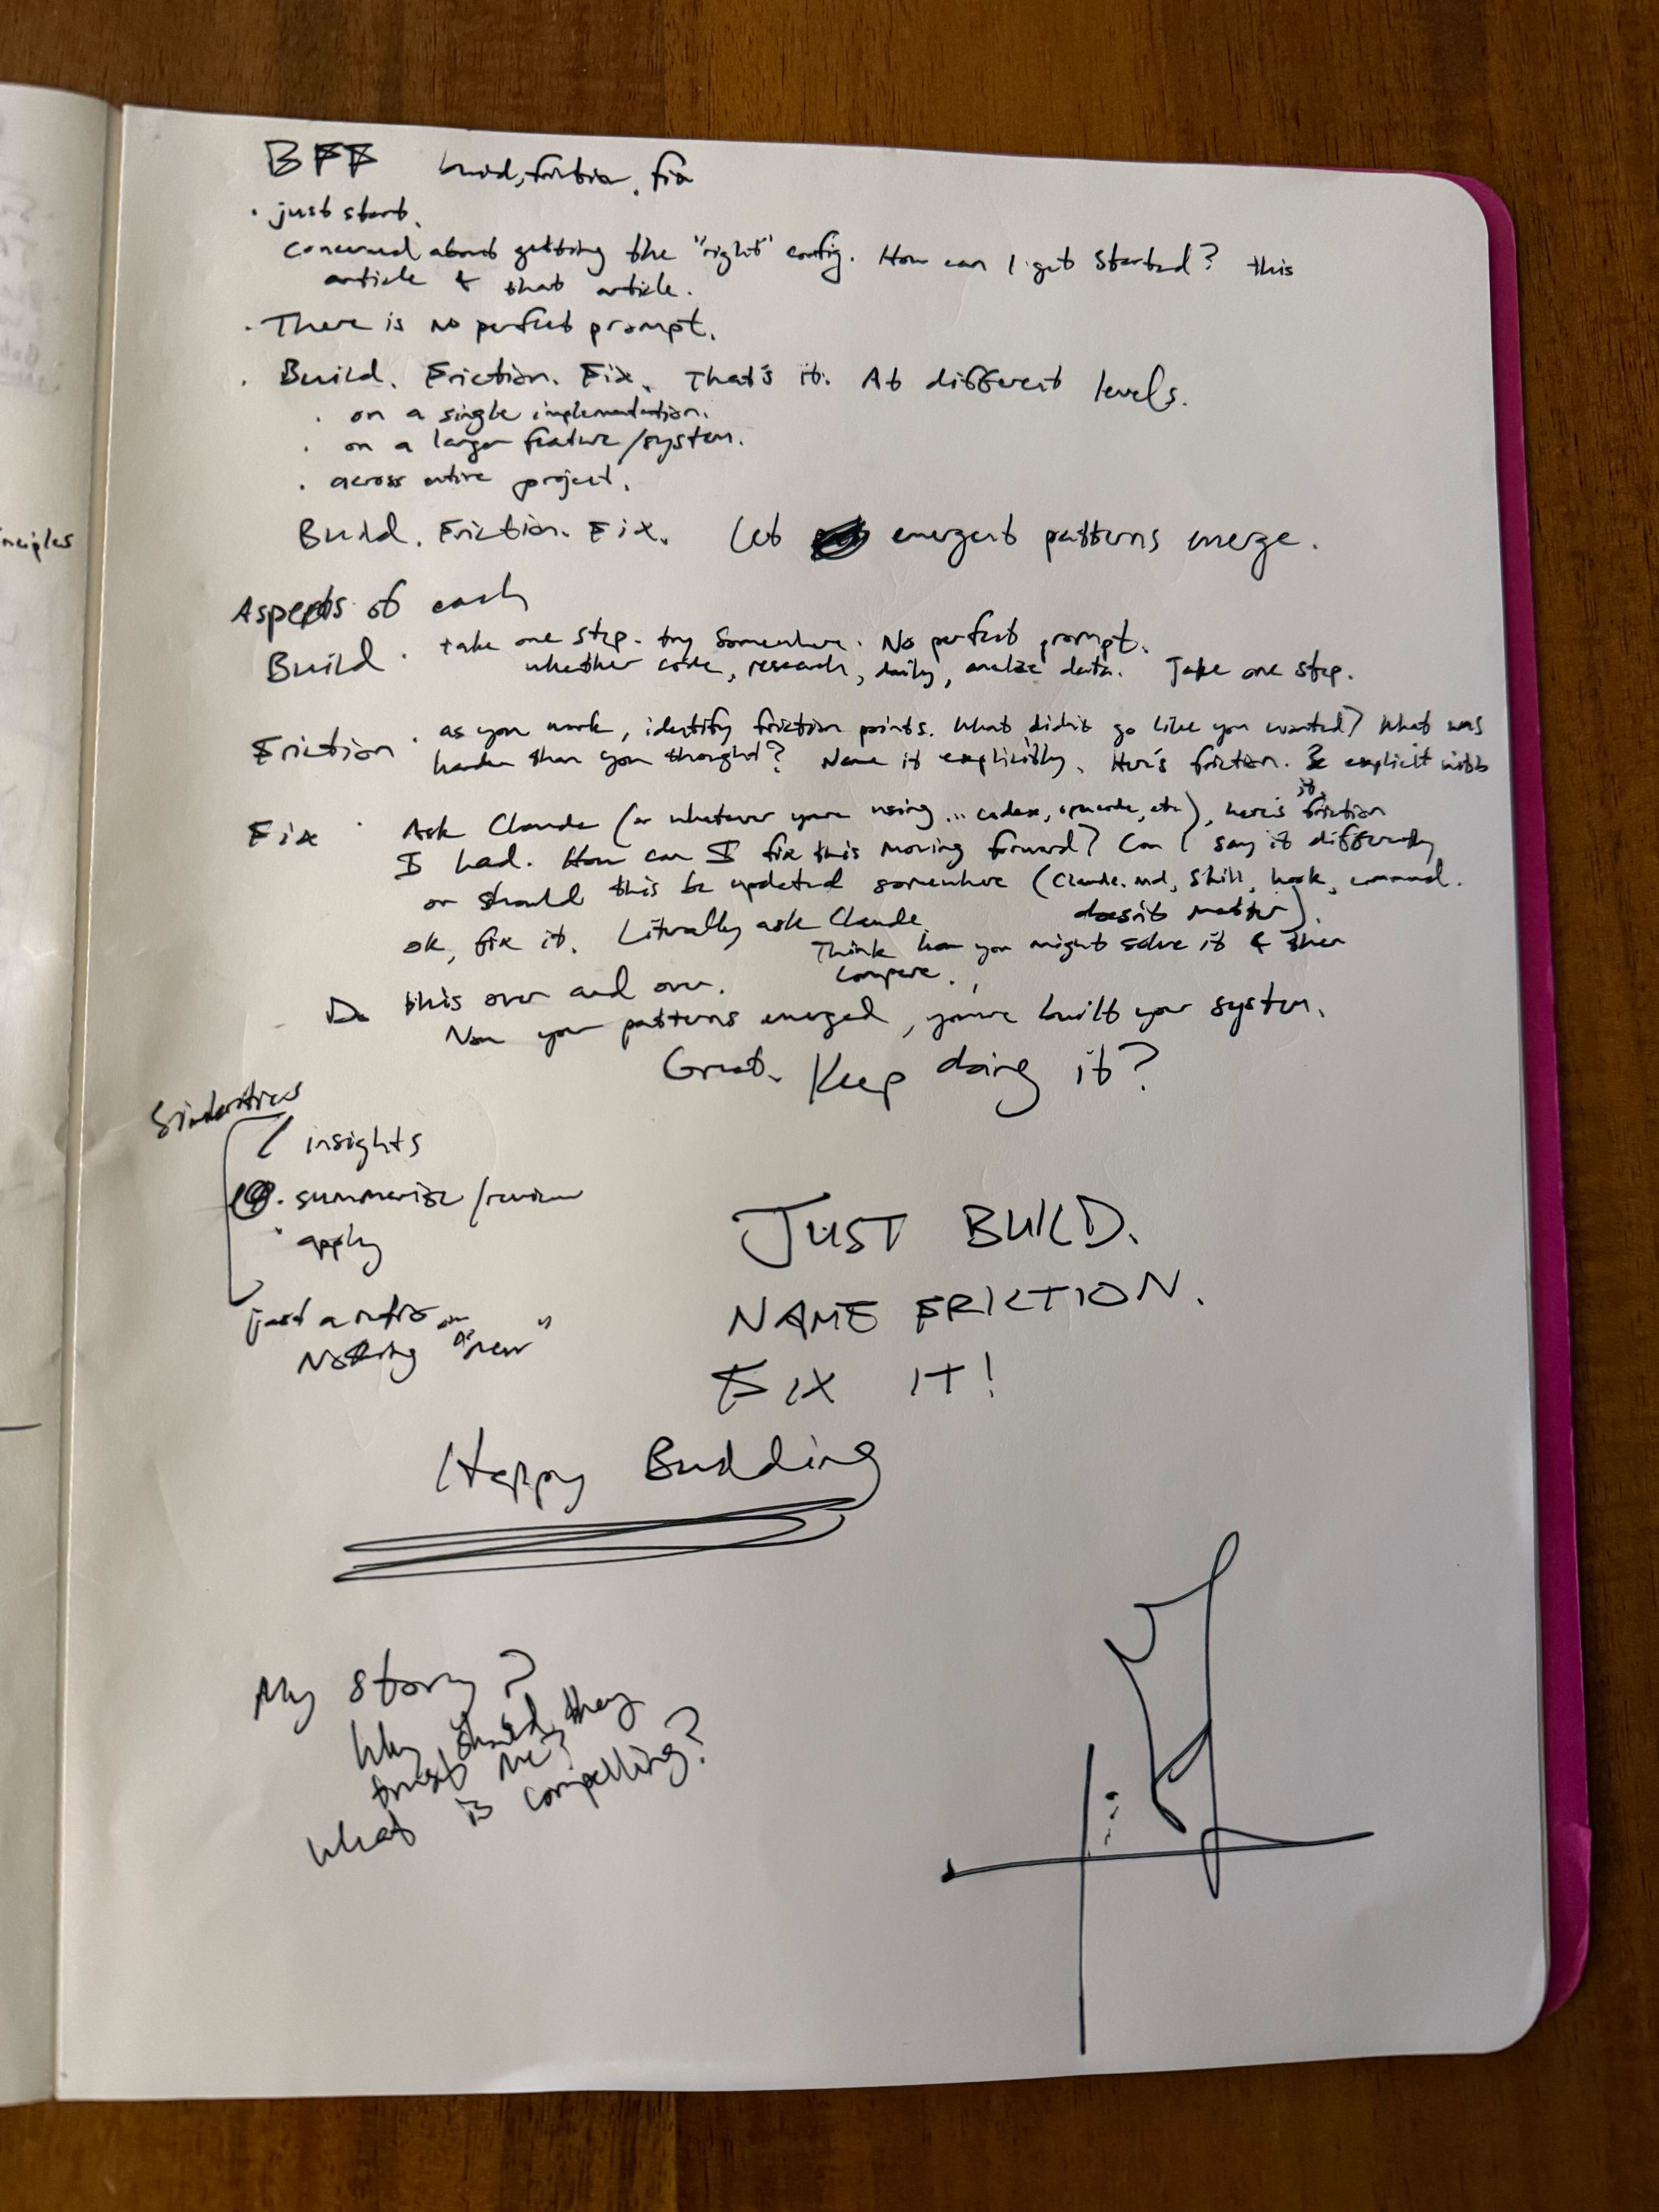 BFF build, friction, fix
· just start.
concerned about getting the "right" config. How can I get started? this
article & that article.
· There is no perfect prompt.
· Build. Friction. Fix. That's it. At different levels.
· on a single implementation.
· on a larger feature/system.
· across entire project.
Build. Friction. Fix. Let emergent patterns emerge.
Aspects of each
Build · take one step. try somewhere. No perfect prompt.
whether code, research, daily, analze data. Take one step.
Friction · as you work, identify friction points. What didn't go like you wanted? What was
harder than you thought? Name it explicitly. Here's friction. Be explicit with
it.
Fix · Ask Claude (or whatever you're using... codex, opencode, etc), here's friction
I had. How can I fix this moving forward? Can I say it differently
or should this be updated somewhere (Claude.md, skill, hook, command.
doesn't matter).
ok, fix it. Literally ask Claude
Think how you might solve it & then
compare.
Do this over and over.
Now your patterns emerged, you've built your system.
Great. Keep doing it?
/ insights
· summarize/review
· apply
just a retro
Nothing "new"
JUST BUILD.
NAME FRICTION.
FIX IT!
Happy Building
My story?
Why should they
trust me?
What is compelling?